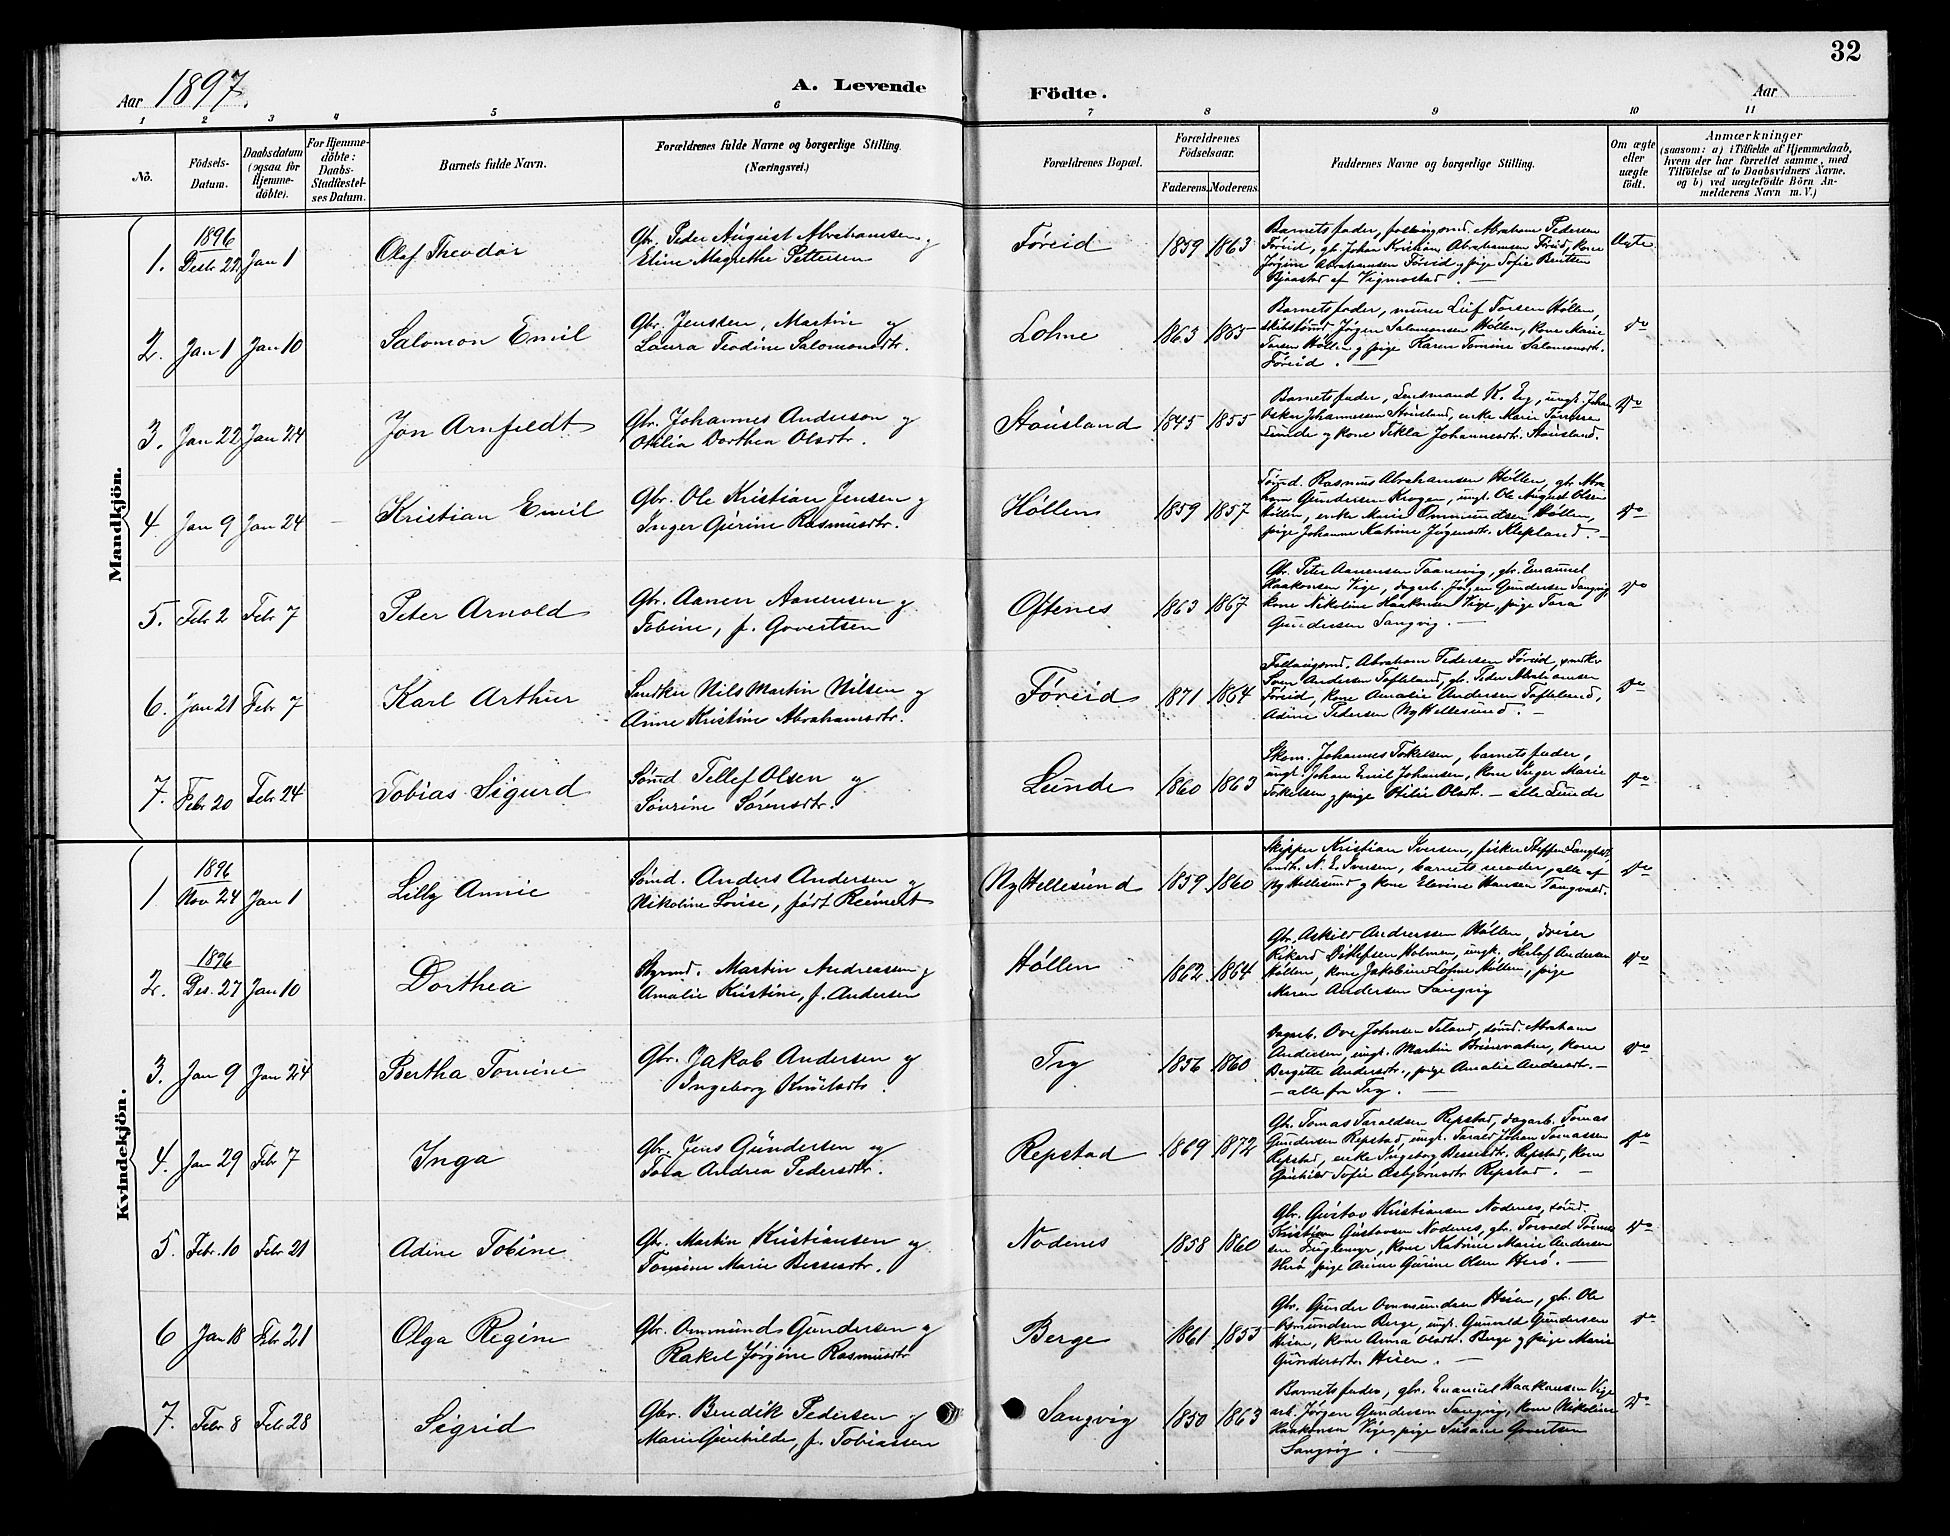 32
Aar 1897.
A. Levende Födte.
Aar
1 2 3 4 5 6 7 8 9 10 11
No.
Födsels-Datum.
Daabsdatum (ogsaa for Hjemme-döbte).
For Hjemme-döbte: Daabs-Stadfæstel-ses Datum.
Barnets fulde Navn.
Forældrenes fulde Navne og borgerlige Stilling.
(Næringsvei.)
Forældrenes Bopæl.
Forældrenes Födselsaar.
Faderens. Moderens.
Faddernes Navne og borgerlige Stilling.
Om ægte eller uægte födt.
Anmærkninger
(saasom: a) i Tilfælde af Hjemmedaab,
hvem der har forrettet samme, med
Tilföielse af to Daabsvidners Navne.
og b) ved uægtefödte Börn An-
melderens Navn m. V.)
Mandkjön.
1. 1896 Desbr 22 Jan 1
Olaf Theodor
Gbr. Peder August Abrahamsen og
Eline Magrethe Pettersen
Föreid 1859 1863
Barnets fader, Abraham Pedersen
Föreid, gb. Johan Kristian Abrahamsen Föreid, kone
Jörgine Abrahamsen Föreid og pige Sofie Bentsen
Bjaastad af Vigmostad. —
Ægte
2. Jan 1 Jan 10
Salomon Emil
Gbr. Jensen, Martin og
Laura Teodine Salomonsdtr.
Lohne 1863 1865
Barnets fader, murer Leif Torsen Höllen,
Jörgen Salomonsen Höllen, kone Marie
Torsen Höllen og pige Karen Tomine Salomonsdtr.
Föreid. —
do
3. Jan 22 Jan 24
Jon Arnfeldt
Gbr. Johannes Anderson og
Otilia Dorthea Olsdtr.
Stausland 1845 1855
Barnets fader, Lensmand K. Eg, ungk. Johan
Oskar Johannessen Stausland, enke Marie
Lunde og kone Tekla Johannesdtr. Stausland.
do
4. Jan 9 Jan 24
Kristian Emil
Gbr. Ole Kristian Jensen og
Inger Gurine Rasmusdtr.
Höllen 1859 1857
Tömd. Rasmus Abrahamsen Höllen, gb. Abra
ham Gundersen Krogen, ungk. Ole August Olsen
Höllen, enke Marie Ommundsen Höllen,
pige Johanne Katrine Jörgensdtr. Klepland. —
do
5. Febr 2 Febr 7
Peter Arnold
Gbr. Aanen Aanensen og
Tobine, f. Govertsen
Oftenes 1863 1867
Gbr. Peter Aanensen Taanevig, gbr. Emanuel
Haakonsen Vige, dagarb. Jörgen Gundersen Sangvig
kone Nikoline Haakonsen Vige, pige Tora
Gundersen Sangvig. —
do
6. Jan 21 Febr 7
Karl Arthur
Snedker Nils Martin Nilsen og
Anne Kristine Abrahamsdtr.
Föreid 1871 1864
Abraham Pedersen Föreid, snedker
Andersen Tofteland, gb. Peder Abrahamsen
Föreid, kone Amalie Andersen Tofteland,
Adine Pedersen Ny Hellesund. —
do
7. Febr 20 Febr 24
Tobias Sigurd
Sömd Tellef Olsen og
Sörine Sörensdtr.
Lunde 1860 1863
Skom. Johannes Torkelsen, barnets fader,
ungk. Johan Emil Johansen, kone Inger Marie
Torkelsen og pige Otilie Olsdt. — alle Lunde
do
Kvindekjön.
1. 1896 Nov 24 Jan 1
Lilly Annie
Sömd. Anders Andersen og
Nikoline Lovise, födt Reimert
Ny Hellesund 1859 1860
Skipper Kristian Iversen, fisker Steffen Langfeldt,
N. E. Iversen, barnets moder, alle af
Ny Hellesund og kone Elevine Hansen Tangvald.
do
2. 1896 Des. 27 Jan 10
Dorthea
Styrmd. Martin Andreassen og
Amalie Kristine, f. Andersen
Höllen 1862 1864
Gbr. Askild Andreassen Höllen,
Rikard Ditlefsen Holmen, ungk. Herlof Andersen
Höllen, kone Jakobine Lohne Höllen, pige
Maren Andersen Sangvig
do
3. Jan 9 Jan 24
Bertha Tomine
Gbr. Jakob Andersen og
Ingeborg Knutsdtr.
Try 1856 1860
Dagarb. Ove Johnsen Teland, tömd. Abraham
Andersen, ungk. Martin, kone
Bergitte Andersdtr., pige Amalie Andersdtr. —
— alle fra Try. —
do
4. Jan 29 Febr 7
Inga
Gbr. Jens Gundersen og
Tora Andrea Pedersdtr.
Repstad 1869 1872
Gbr. Tomas Taraldsen Repstad, dagarb. Tomas
Gundersen Repstad, ungk. Tarald Johan Tomassen
Repstad, enke Ingeborg Bessesdtr. Repstad, kone
Gunhild Sofie Asbjörnsdtr Repstad. —
do
5. Febr. 10 Febr 21
Adine Tobine
Gbr. Martin Kristiansen og
Tomine Marie Bessesdtr.
Nodenes 1858 1860
Gbr. Gustav Kristiansen Nodenes, tömd.
Kristian Gustavsen Nodenes, gb. Torvald Tönnes
sen Fuglemyr, kone Katrine Marie Andersen
Herö, pige Anne Gurine Olsen Herö. —
do
6 Jan 18 Febr 21
Olga Regine
Gbr. Ommund Gundersen og
Rakel Jörgine Rasmusdtr
Berge 1861 1855
Gbr. Gunder Ommundsen Heien, gb. Ole
Berge, ungk. Gunvald Gundersen
Heien, kone Anna Olsdt. Berge og pige Marie
Gundersdt. Heien. —
do
7. Febr 8 Febr 28
Sigrid
Gbr. Bendik Pedersen og
Marie Gunhilde, f. Tobiassen
Sangvig 1850 1863
Barnets fader, gbr. Emanuel Haakonsen Vige
arb. Jörgen Gundersen Sangvig, kone Nikoline
Haakonsen Vige, pige Susane Govertsen
Sangvig. —
do